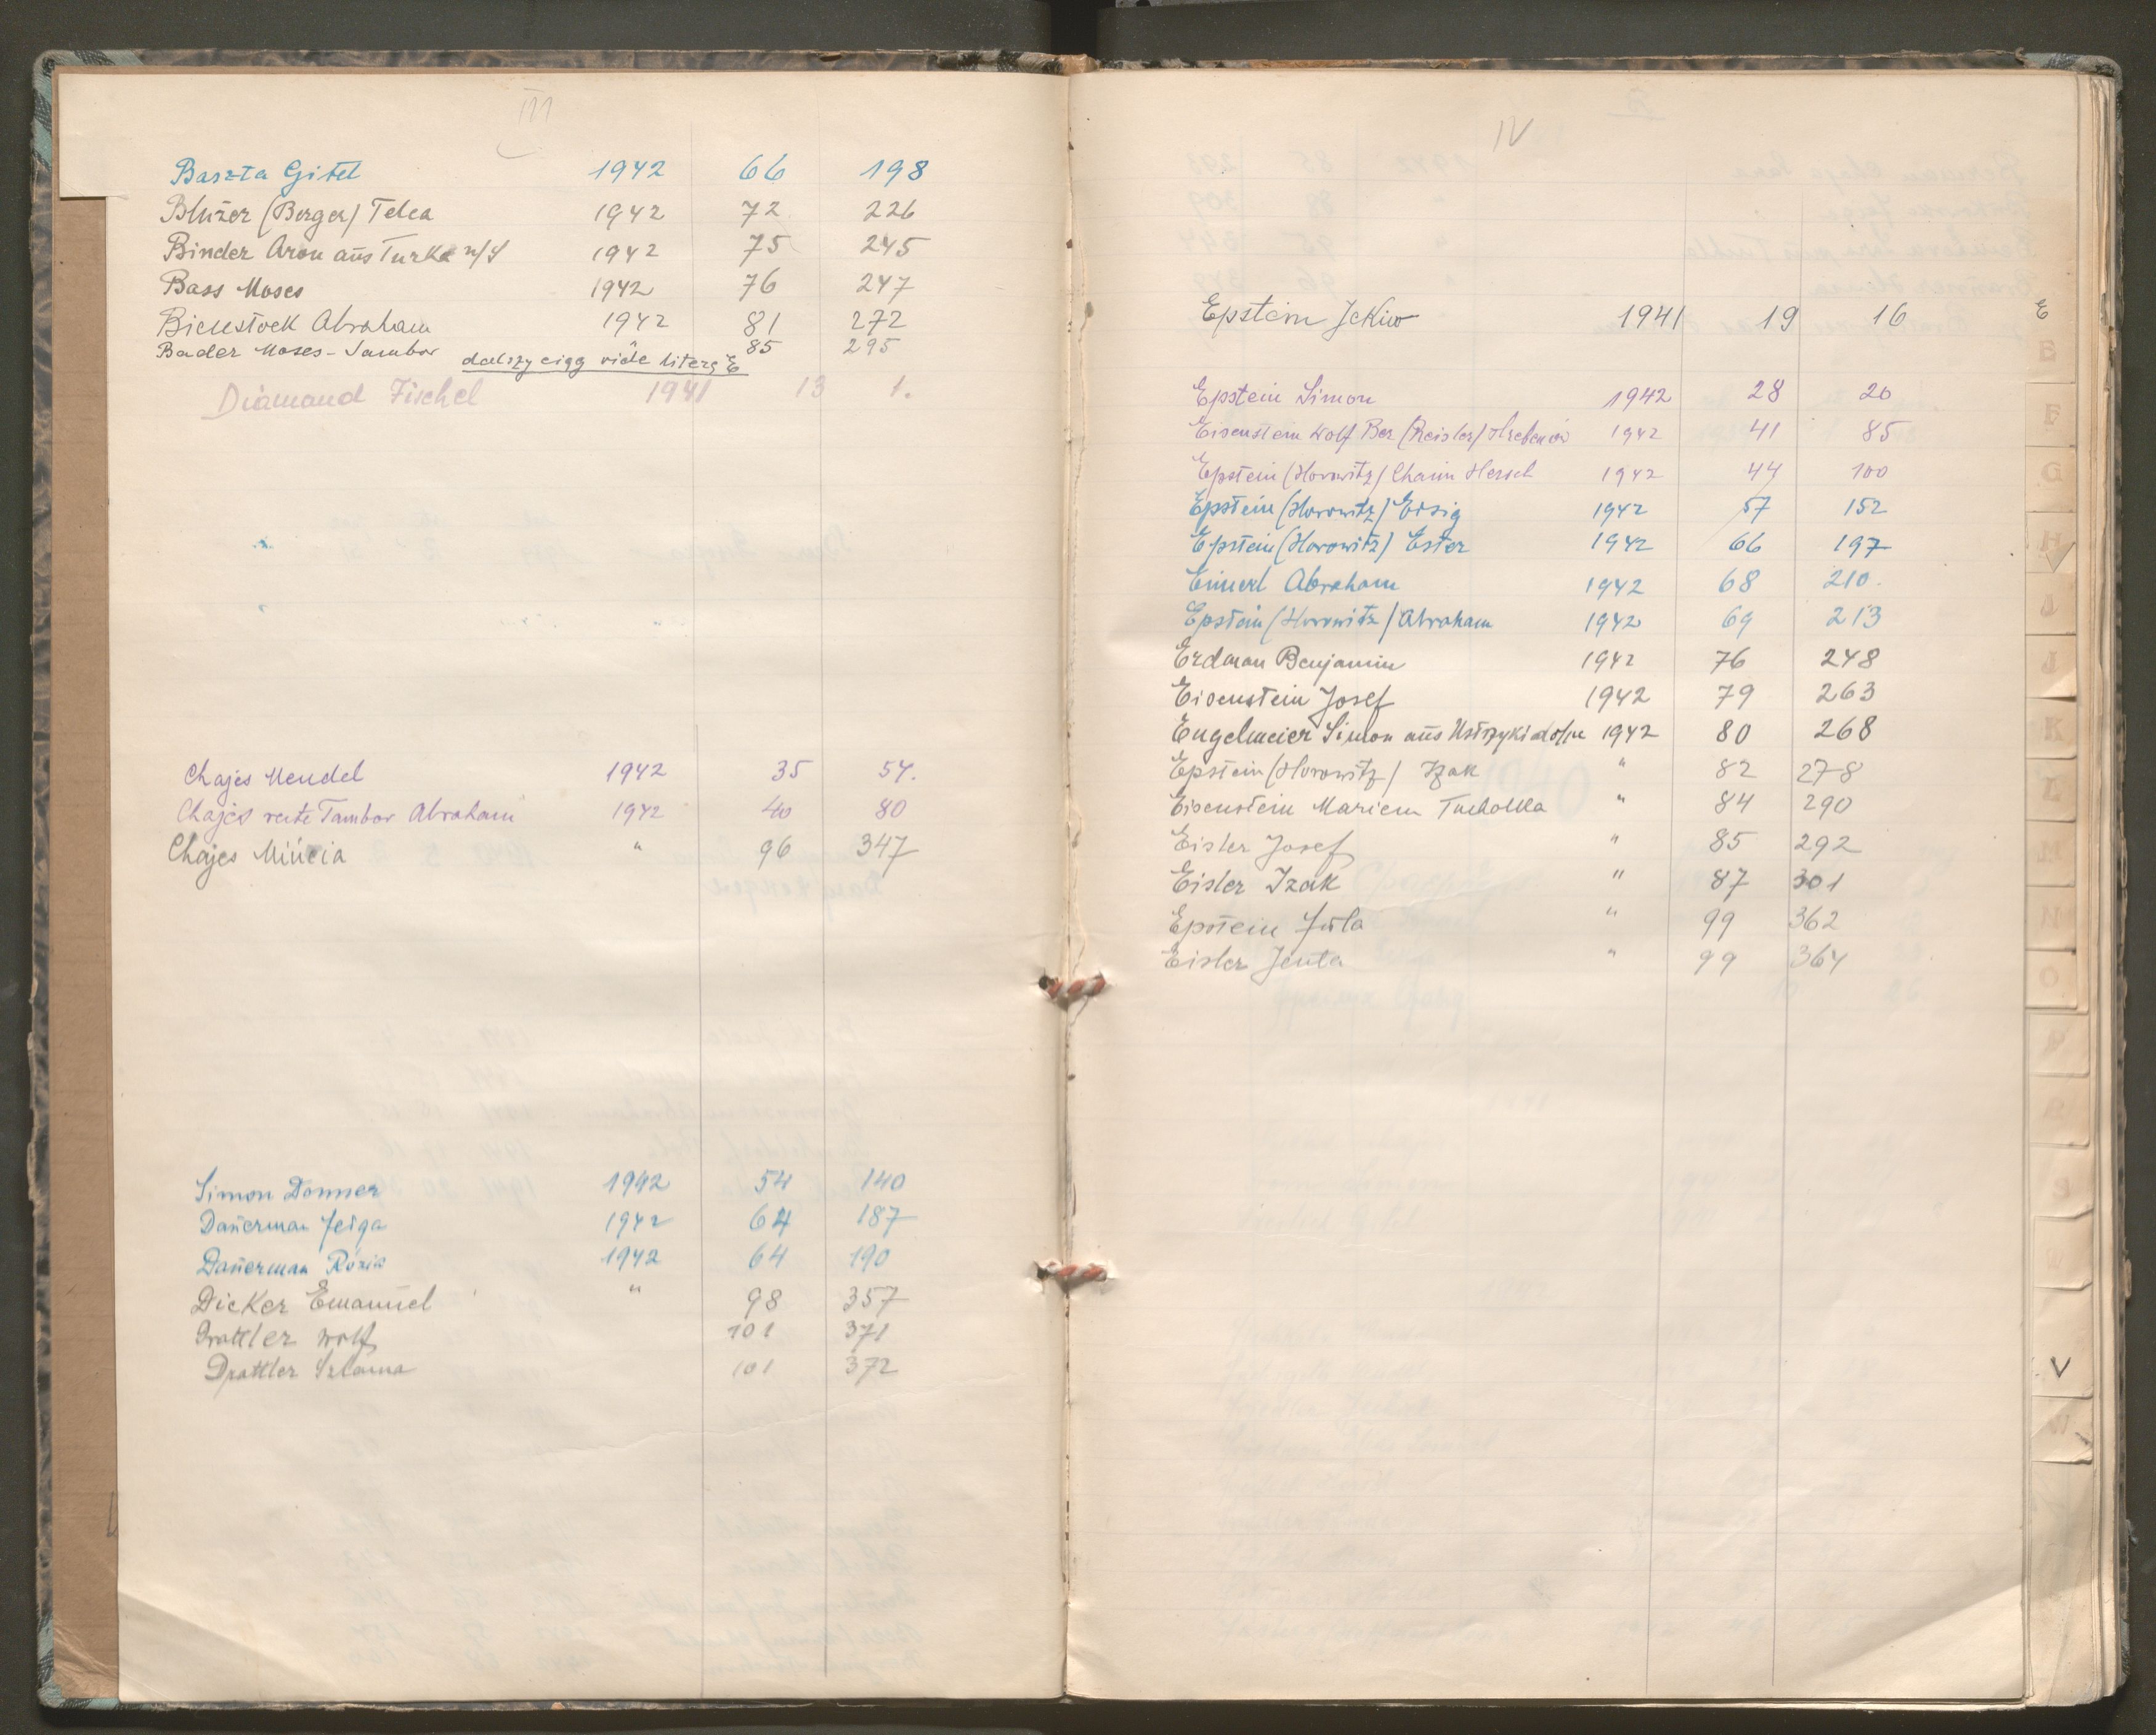 III
Baszta Gitel 1942 66 198
Blužer (Berger) Telca 1942 72 226
Binder Aron aus Turka n/S 1942 75 245
Bass Moses 1942 76 247
Bienstock Abraham 1942 81 272
Bader Moses - Sambor " 85 295
dalszy ciąg vide literę E
Diamand Fischel 1941 13 1.
Chajes Mendel 1942 35 54.
Chajes recte Tambor Abraham 1942 40 80
Chajes Mińcia " 96 347
Simon Donner 1942 54 140
Dauerman Feiga 1942 64 187
Dauerman Rózia 1942 64 190
Dicker Emanuel " 98 357
Drattler Wolf 101 371
Drattler Szloma 101 372
IV
Epstein Jckiw 1941 19 16
Epstein Simon 1942 28 20
Eisenstein Wolf Ber (Reisler) Hrebenów 1942 41 85
Epstein (Horowitz) Chaim Hersch 1942 44 100
Epstein (Horowitz) Eisig 1942 57 152
Epstein (Horowitz) Ester 1942 66 197
Eimerl Abraham 1942 68 210.
Epstein (Horowitz) Abraham 1942 69 213
Erdman Benjamin 1942 76 248
Eisenstein Josef 1942 79 263
Engelmeier Simon aus Ustrzyki dolne 1942 80 268
Epstein (Horowitz) Izak " 82 278
Eisenstein Mariem Tucholka " 84 290
Eisler Josef " 85 292
Eisler Izak " 87 301
Epstein Juta " 99 362
Eisler Jenta " 99 364
E
V